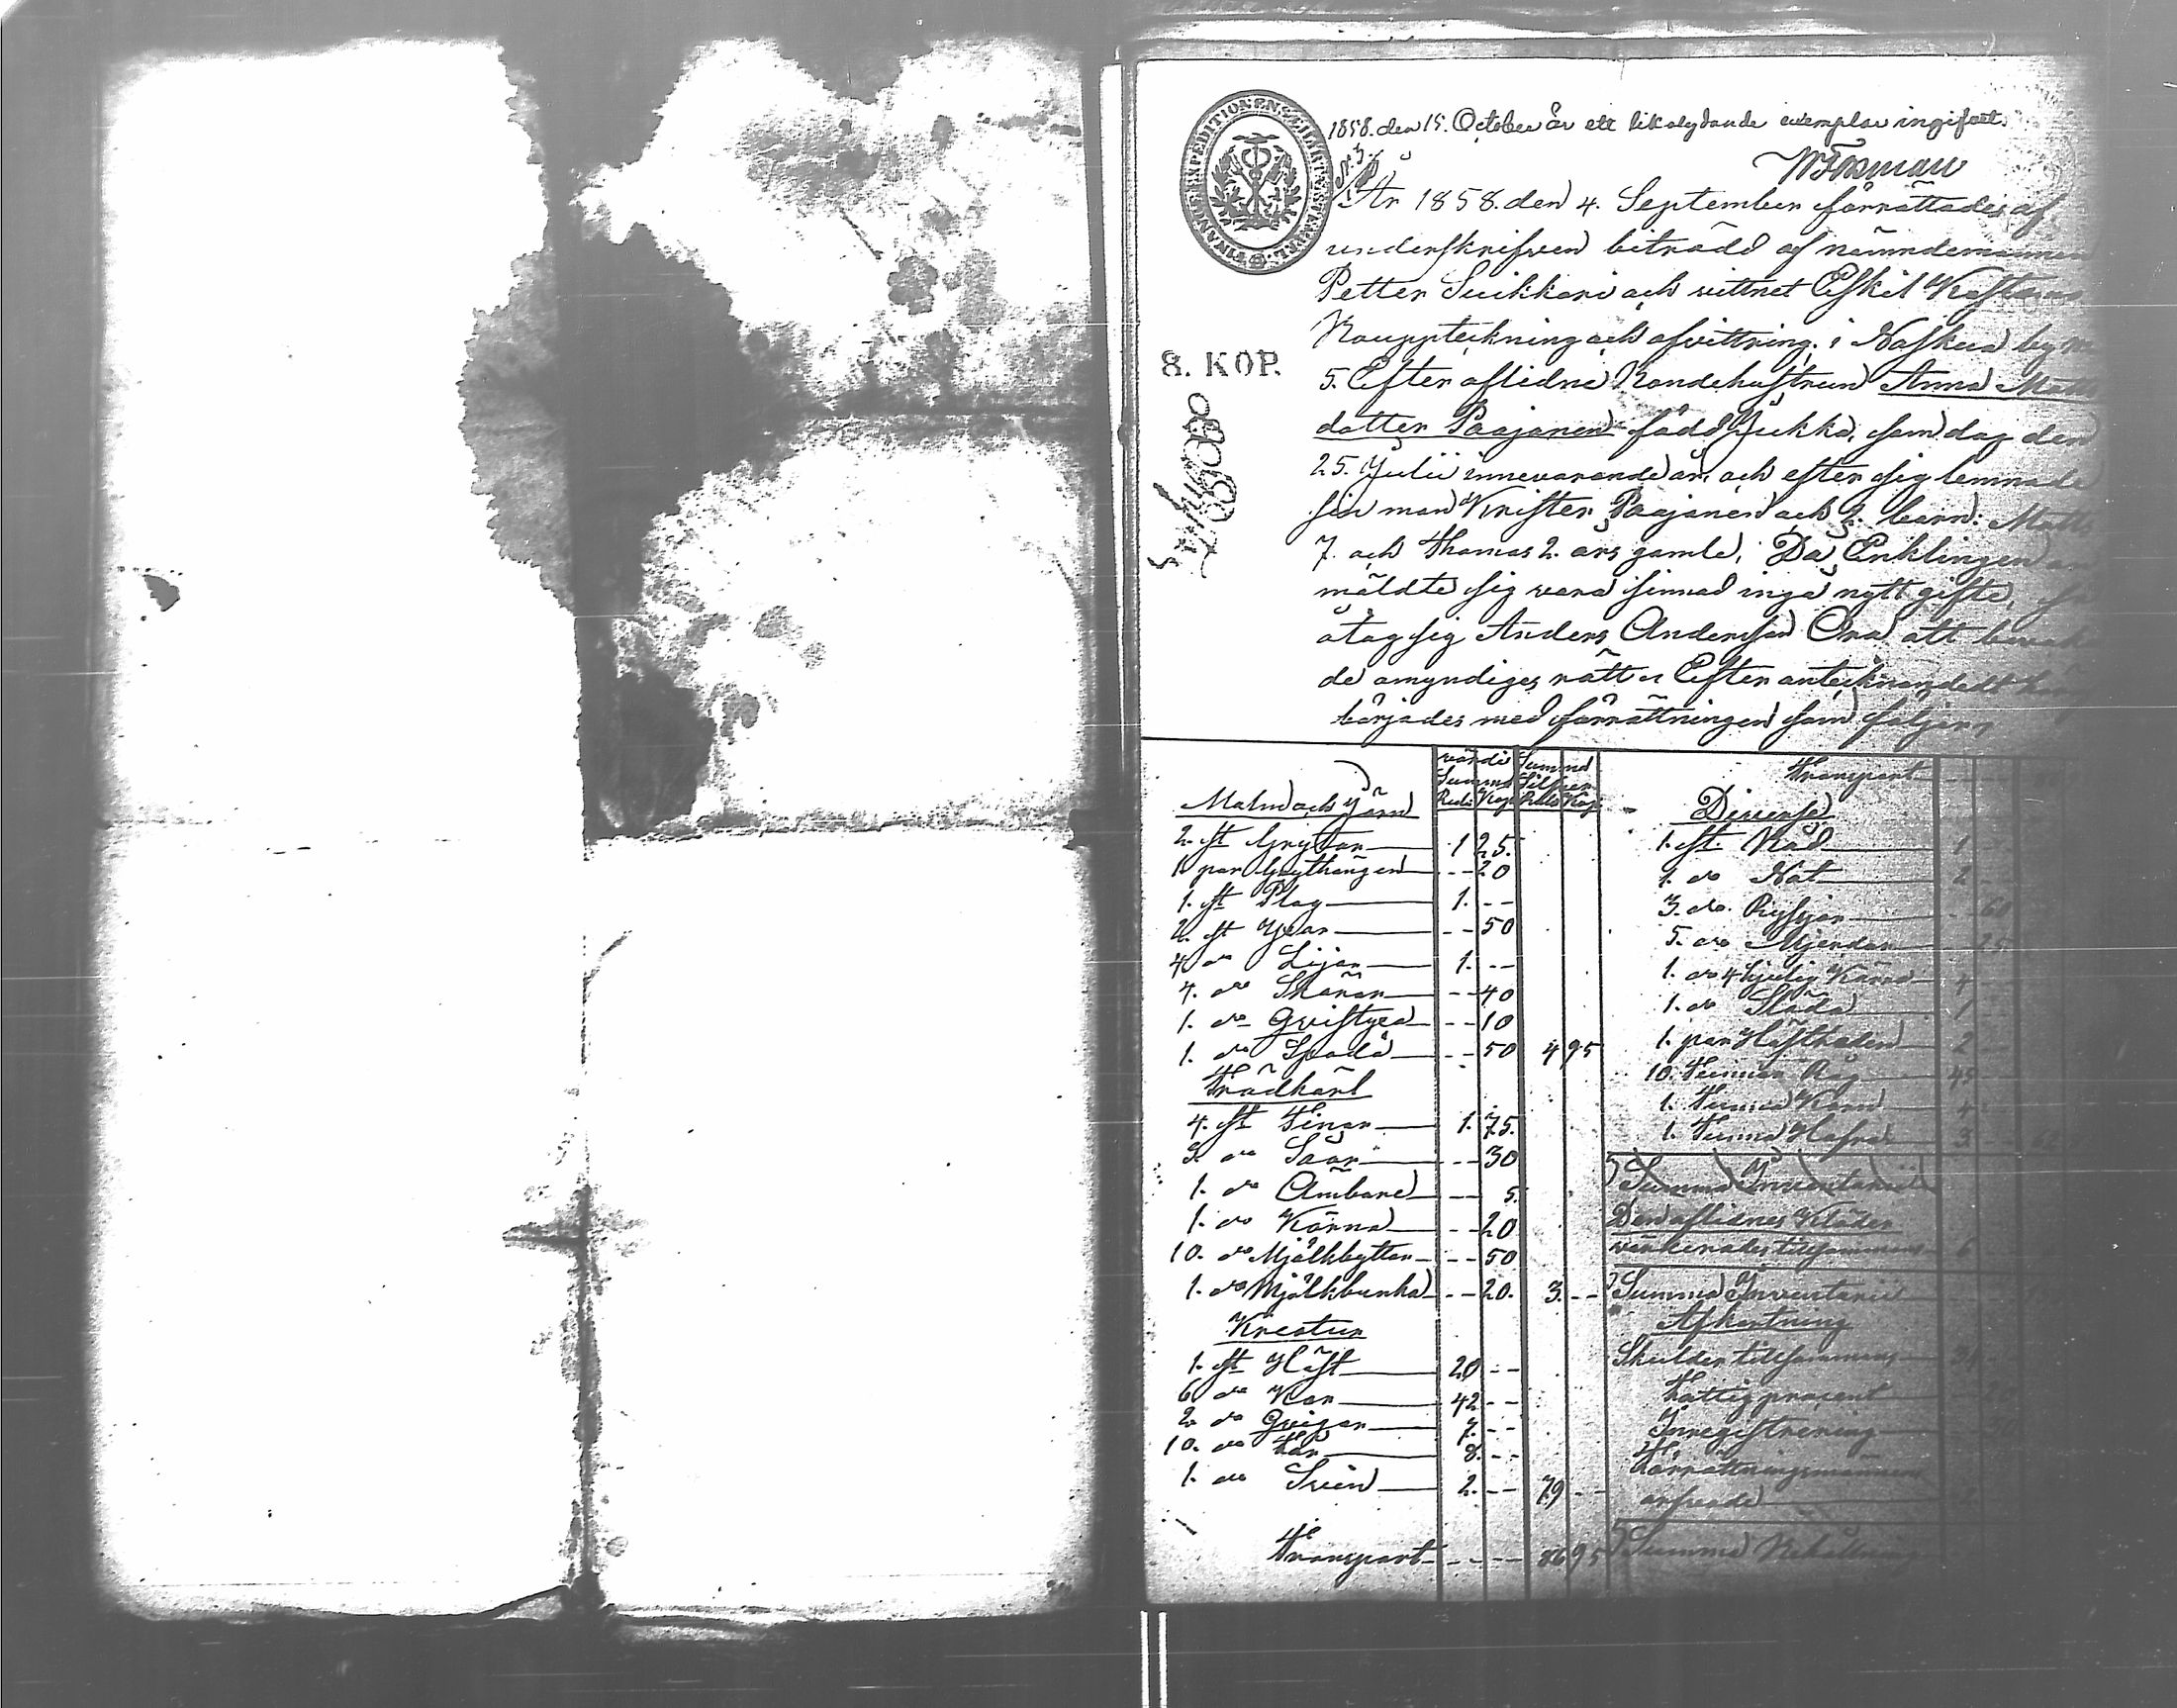 1858. den 15. October är ett likalydande exemplar ingifvet.
FINANCE EXPEDITIONENS CHARTÆ STEMPEL
År 1858. den 4. September förrättades af
underskrifven biträdd af nämndemannen
Petter Suikkari och vittnet Eskil
8. KOP.
Bouppteckning och afvittring i by
5. Efter aflidne Bondehustrun Anna
dotter Paajanen född Jukka, som dog den
25. Julii innevarande år, och efter sig lemnade
sin man Krister Paajanen och 2. barn: Matts
7. och Thomas 2. års gamle, Då Enklingen
mäldte sig vara sinnad ingå nytt gifte,
åtog sig Anders Andersson Ora att
de omyndiges rätt. Efter antecknandett
börjades med förrättningen som följer,
värde Summa
Summa Silfver
Rub: Kop:
Rub: Kop:
Malm och Järn
2. st Grytor 1 25.
1. par Grythängen -- 20
1. st Plog 1. --
2. st Yxor -- 50
4 do Lijor 1. --
4. do Skäror -- 40
1. do Qvistyxa -- 10
1. do Spada -- 50 4 95
Trädkärl
4. st Tinor 1. 75.
3. do Såar -- 30
1. do Ämbare -- 5.
1. do Kärna -- 20
10. do Mjölkbyttor -- 50
1. do Mjölkbunka -- 20. 3. --
Kreatur
1. st Häst 20 --
6 do Kor 42 --
2 do Qvigor 7. --
10. do Får 8. --
1. do Svin 2. -- 79 --
Transport 86 95
Transport
Diverse
1. st. Råd 1
1. do Not 2
3. do Rysjor 60
5. do Mjerdor 25
1. do 4 hjulig Kärra 4
1. do Släda 1
1. par Hästhoden 2
10. Tunnor Råg 45
1. Tunna Korn 4
1. Tunna Hafra 3
Summa Inventarii
Den aflidnes Kläder
värderades tillsammans 6
Summa Inventarii
Afkortning
Skulder tillsammans
Fattigprocent
Inregistrering
Förrättningsmännens
arfvode
Summa